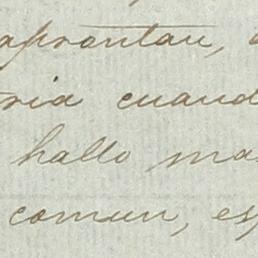 aprontan,
ria cuand
hallo mas
comun, es